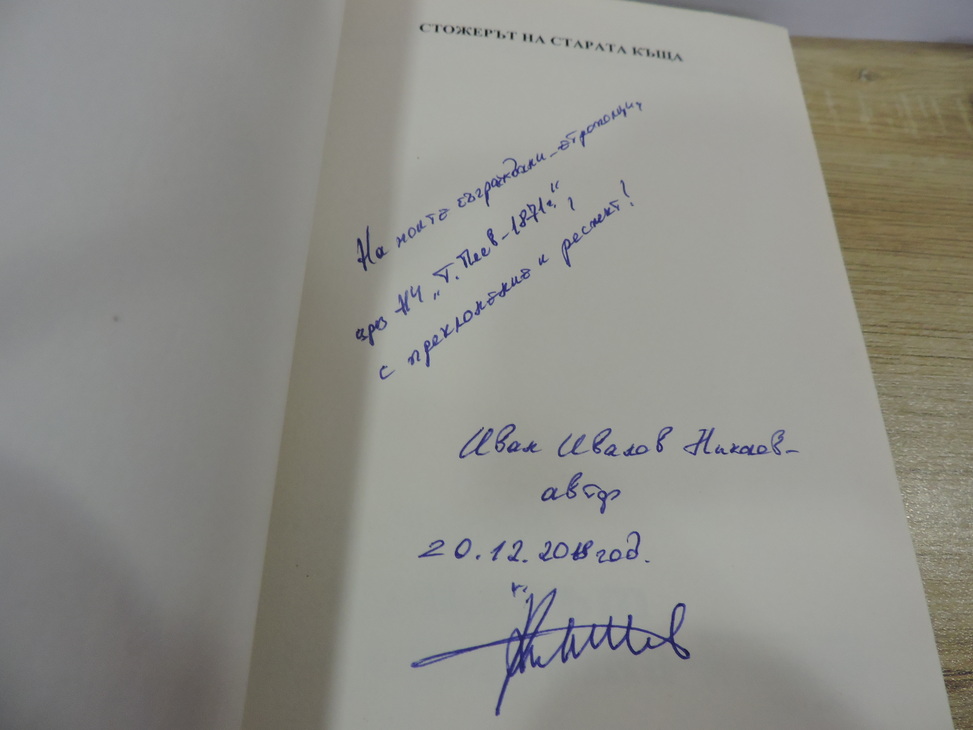 СТОЖЕРЪТ НА СТАРАТА КЪЩА
На моите съграждани - етрополци,
чрез НЧ „Т. Пеев - 1871г.“,
с преклонение и респект!
Иван Ивалов Николов -
автор
20.12.2018 год.